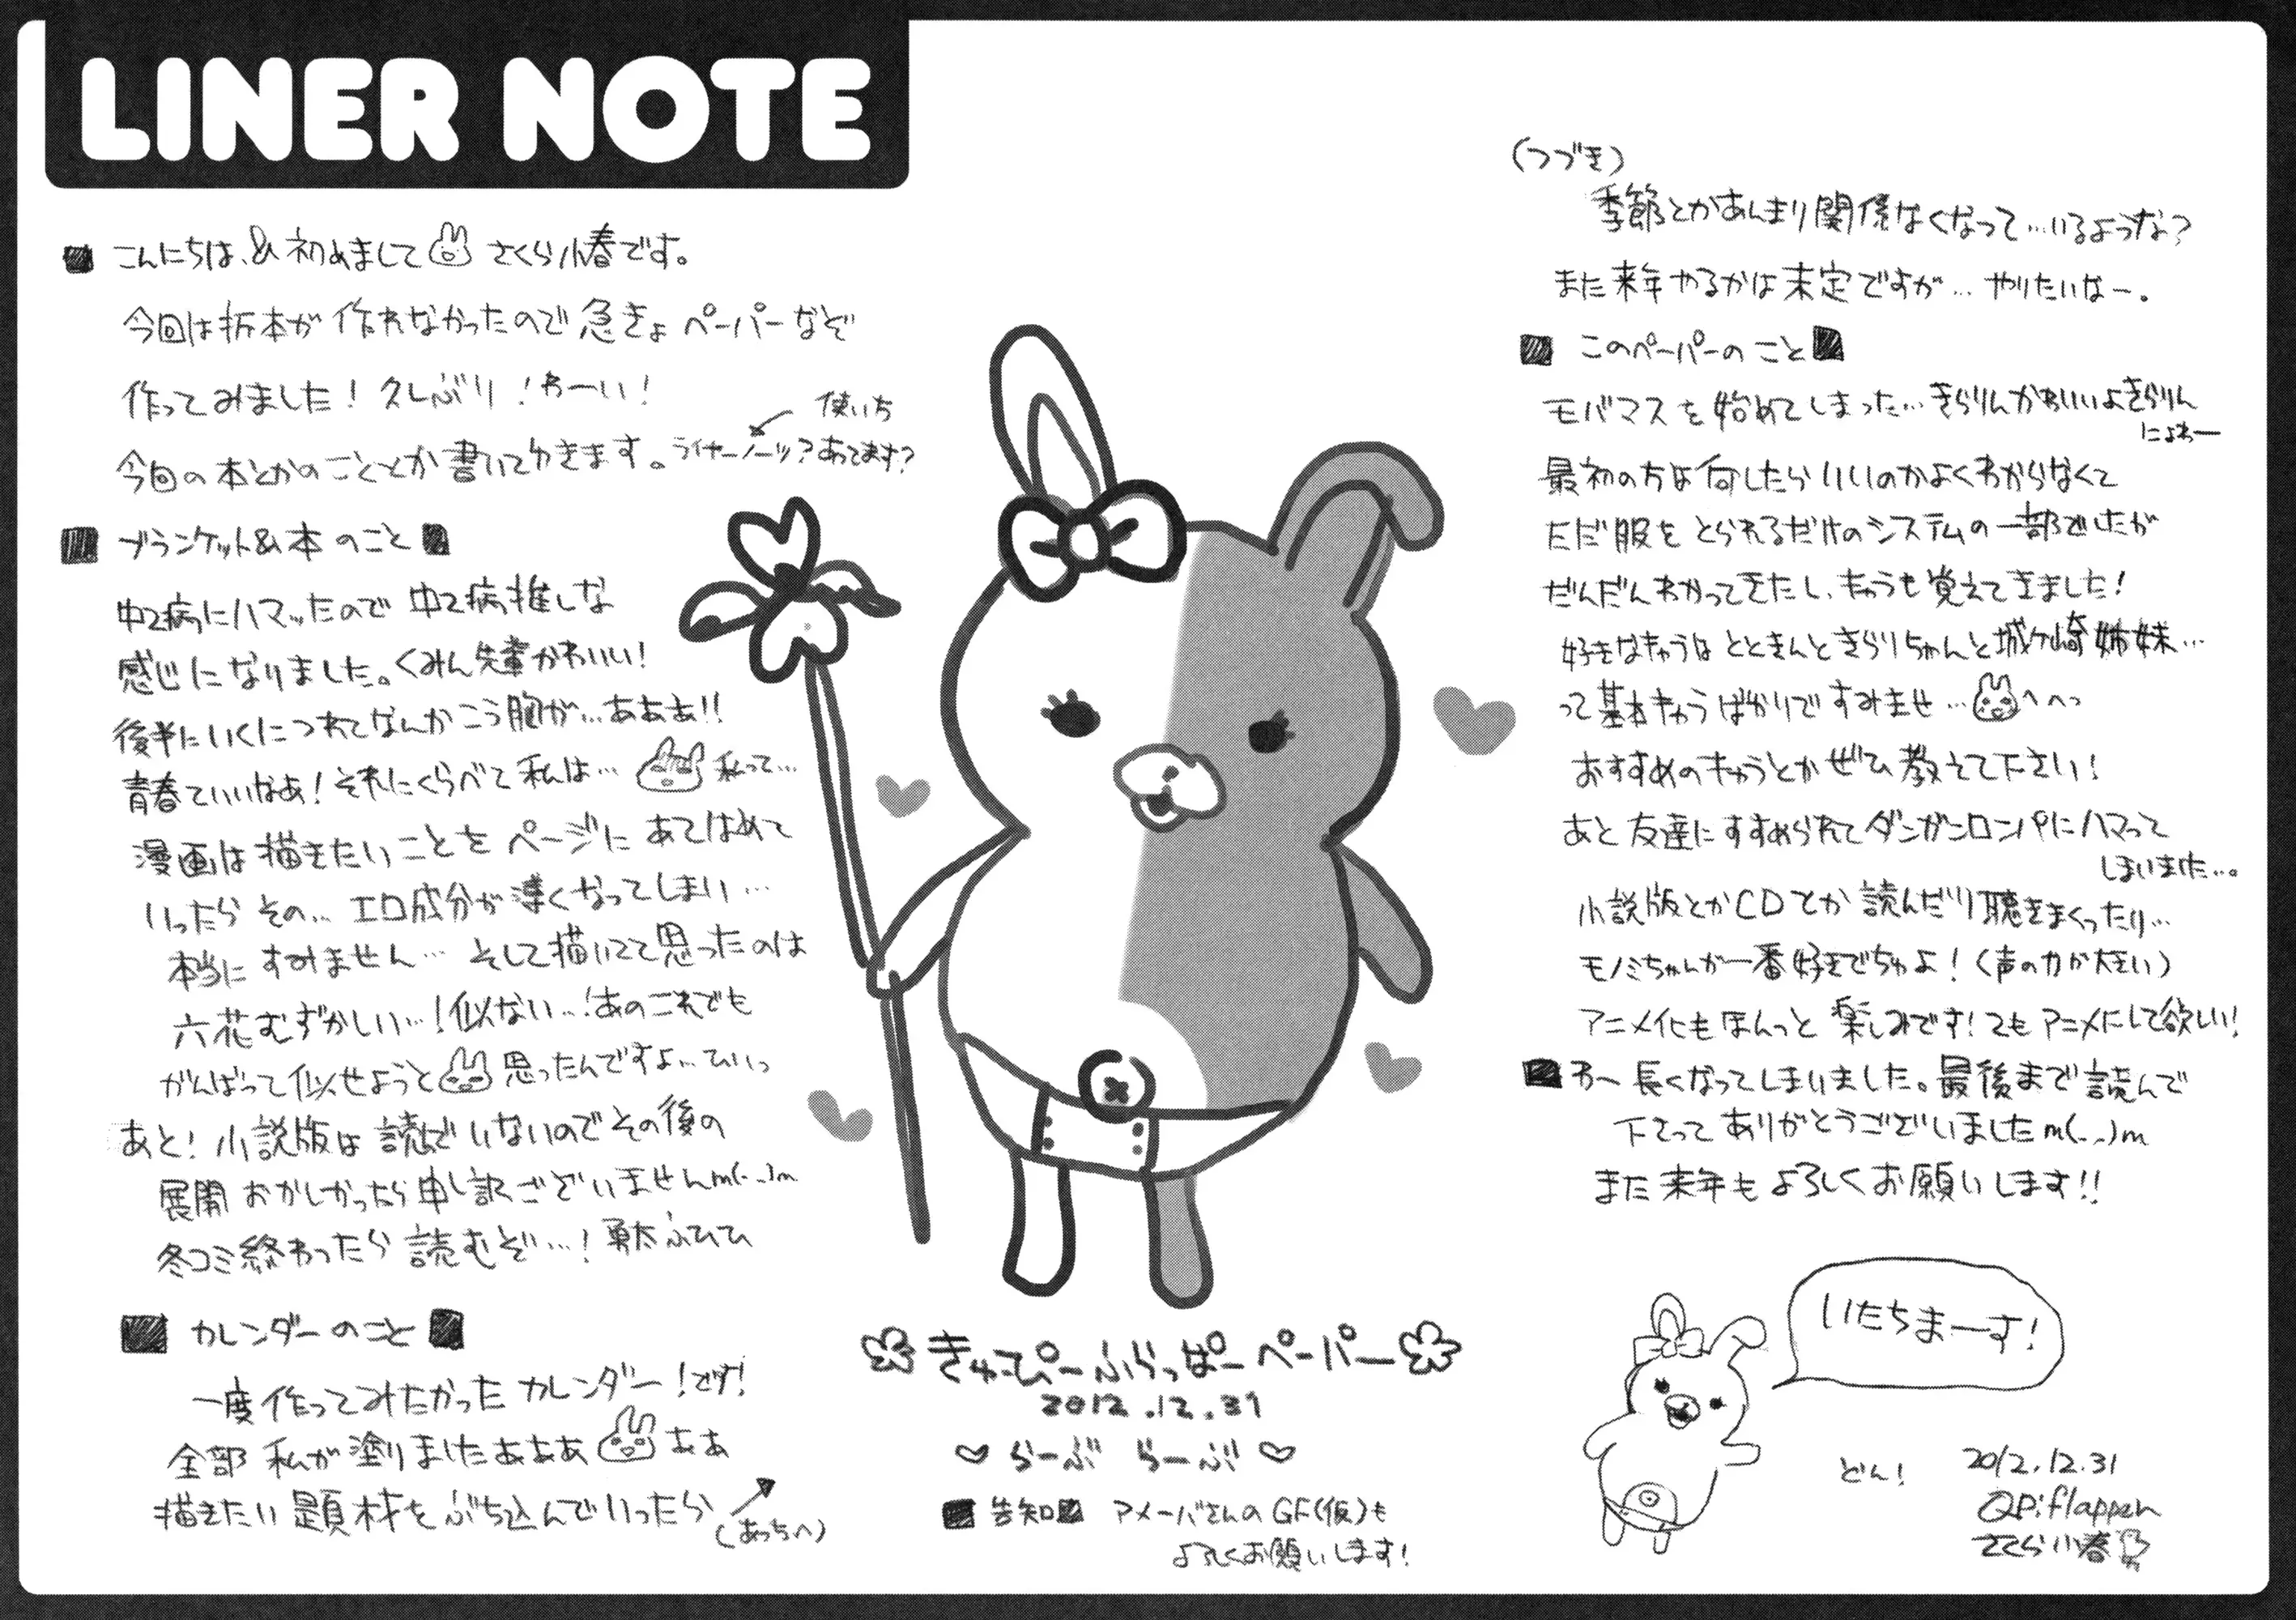 LINER NOTE
■ こんにちは、&初めまして さくら小春です。
今回は折本が作れなかったので急きょペーパーなぞ
作ってみました!久しぶり!わーい!
今回の本とかのこととか書いてゆきます。ライナーノーツ?あってます?
使いち
■ ブランケット&本のこと ■
中2病にハマッたので中2病推しな
感じになりました。くみん先輩かわいい!
後半にいくにつれてなんかこう胸が…あああ!!
青春ていいなあ!それにくらべて私は… 私って…
漫画は描きたいことをページにあてはめて
いったらその…エロ成分が薄くなってしまい…
本当にすみません…そして描いてて思ったのは
六花むずかしい…!似ない…!あのこれでも
がんばって似せようと 思ったんですよ…ひいっ
あと!小説版は読んでいないのでその後の
展開おかしかったら申し訳ございませんm(_ _)m
冬コミ終わったら読むぞ…!勇太ふひひ
■ カレンダーのこと ■
一度作ってみたかったカレンダー!です!
全部私が塗りましたあああ ああ
描きたい題材をぶち込んでいったら
(あっちへ)
きゅーぴーふらっぱーペーパー
2012.12.31
らーぶ らーぶ
■ 告知 ■ アメーバさんのGF(仮)も
よろしくお願いします!
(つづき)
季節とかあんまり関係なくなって…いるような?
また来年やるかは未定ですが…やりたいなー。
■ このペーパーのこと ■
モバマスを始めてしまった…きらりんかわいいよきらりん
にょわー
最初の方は何したらいいのかよくわからなくて
ただ服をとられるだけのシステムの一部でしたが
だんだんわかってきたし、キャラも覚えてきました!
好きなキャラはとときんときらりちゃんと城ヶ崎姉妹…
って基本キャラばかりですみませ… へへっ
おすすめのキャラとかぜひ教えて下さい!
あと友達にすすめられてダンガンロンパにハマって
しまいました…。
小説版とかCDとか読んだり聴きまくったり…
モノミちゃんが一番好きでちゅよ!(声の力が大きい)
アニメ化もほんっと楽しみです!2もアニメにして欲しい!
■ わー長くなってしまいました。最後まで読んで
下さってありがとうございましたm(_ _)m
また来年もよろしくお願いします!!
いたちまーす!
どん!
2012.12.31
QP:flapper
さくら小春